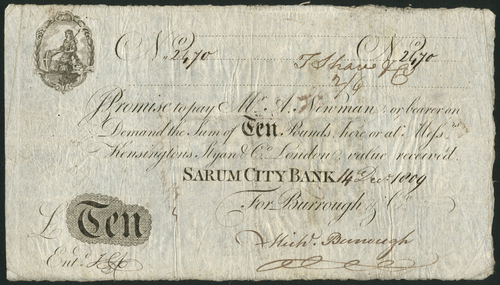 No. 2470 No. 2470
I Promise to pay Mr. A. Newman, or bearer on
Demand the Sum of Ten Pounds, here or at Messrs.
Kensingtons, Styan & Co. London; value received.
SARUM CITY BANK 14 Decr. 1809
For Burrough & Co.
£ Ten
Michl. Burrough
Entd.